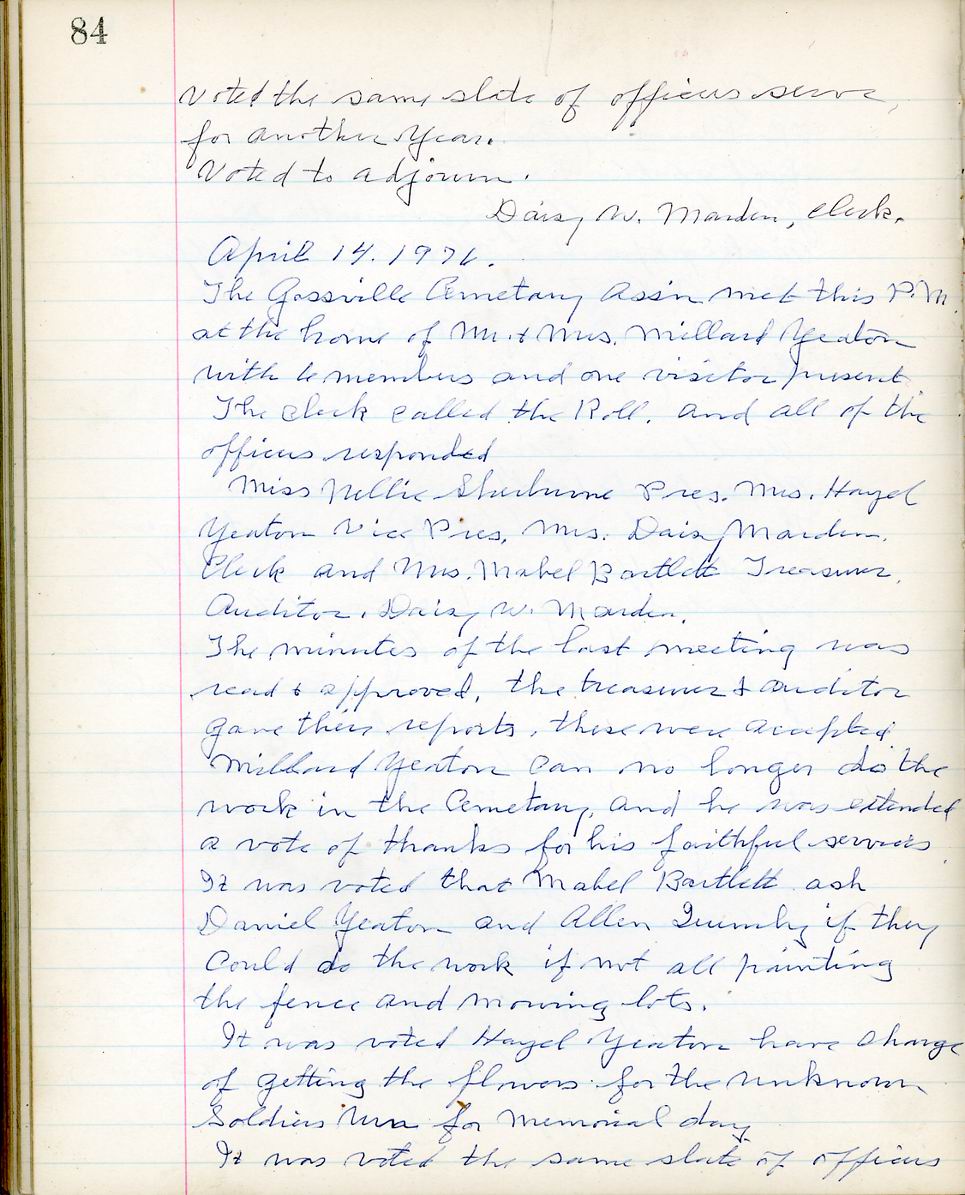 84
Voted the same slate of officers serve,
for another year.
Voted to adjourn.
Daisy W. Marden, Clerk.
April 14. 1976.
The Gossville Cemetary Ass'n met this P.M.
at the home of Mr. & Mrs. Millard Yeaton
with 6 members and one visitor present.
The clerk called the Roll, and all of the
officers responded
Miss Nellie Sherburne Pres. Mrs. Hazel
Yeaton Vice Pres, Mrs. Daisy Marden.
Clerk and Mrs. Mabel Bartlett Treasurer.
Auditor, Daisy W. Marden.
The minutes of the last meeting was
read & approved, the treasurer & auditor
gave their reports, these were accepted.
Millard Yeaton can no longer do the
work in the Cemetary, and he was extended
a vote of thanks for his faithful services.
It was voted that Mabel Bartlett ask
Daniel Yeaton and Allen Quimby if they
could do the work if not all painting
the fence and mowing lots.
It was voted Hazel Yeaton have charge
of getting the flowers for the unknown
Soldiers Urn for Memorial day.
It was voted the same slate of officers